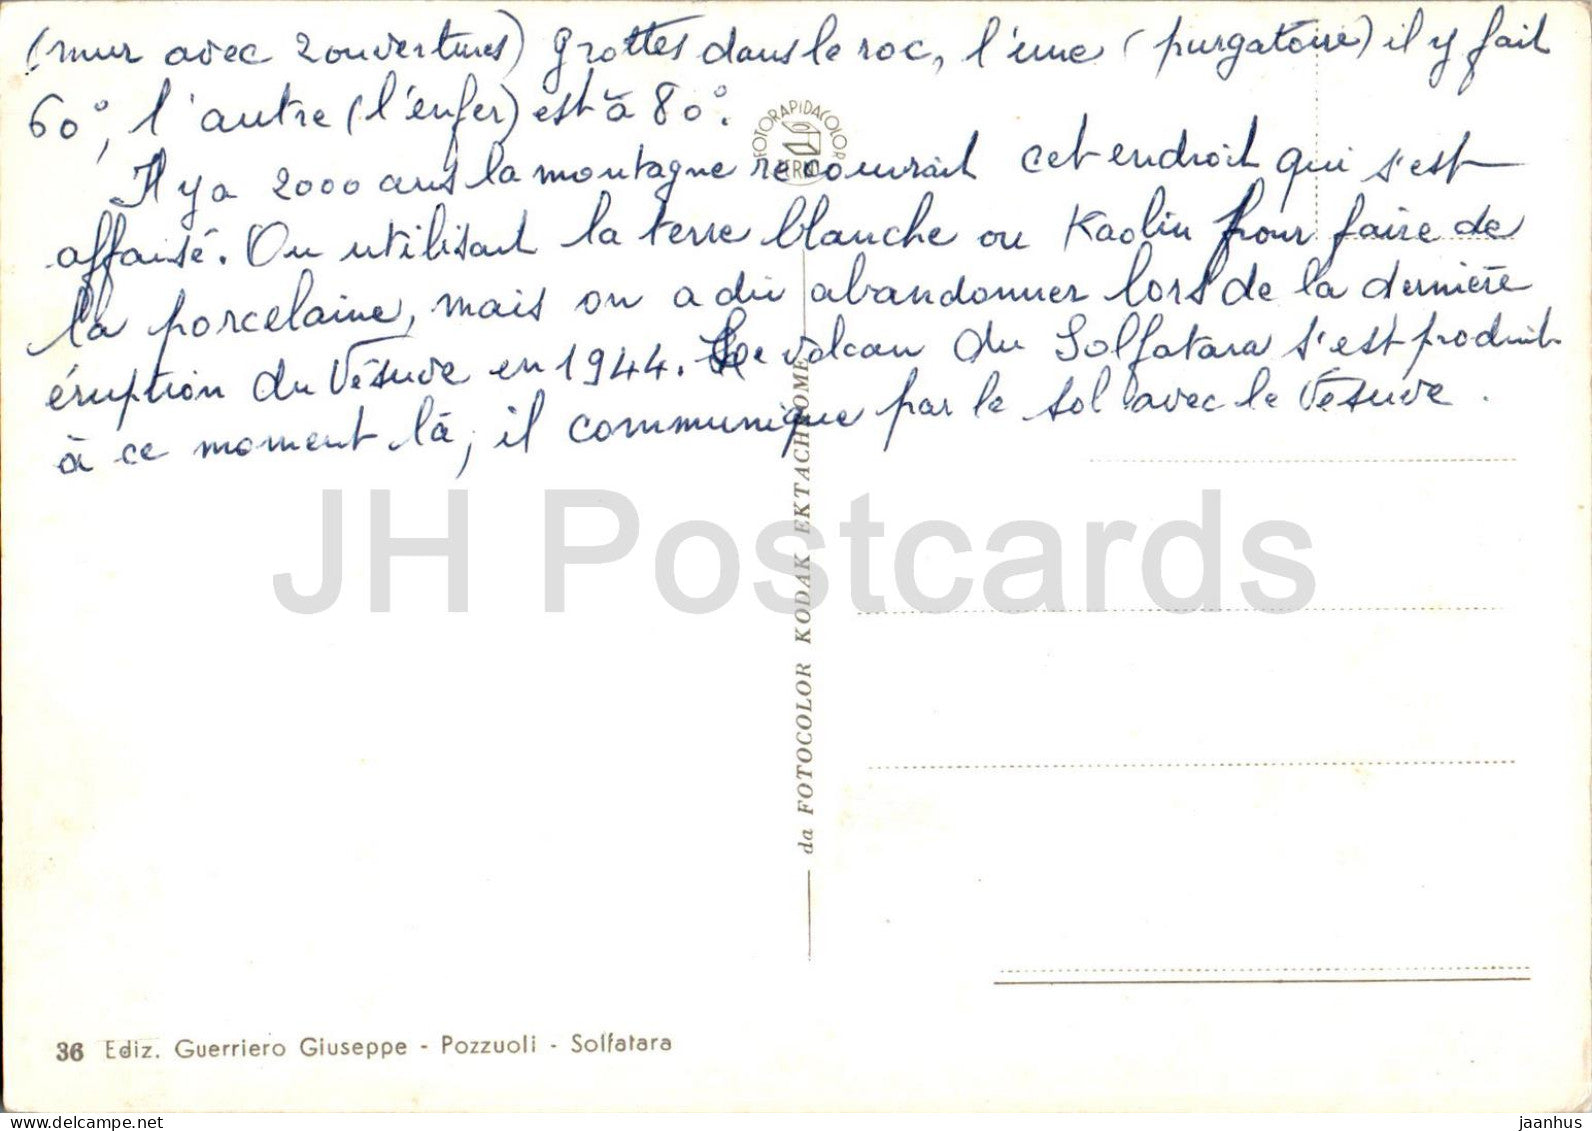 (mur avec 2 ouvertures) Grottes dans le roc, l'une (purgatoire) il y fait
60°, l'autre (l'enfer) est à 80°.
Il y a 2000 ans la montagne recouvrait cet endroit qui s'est
affaissé. On utilisait la terre blanche ou Kaolin pour faire de
la porcelaine, mais on a dû abandonner lors de la dernière
éruption du Vésuve en 1944. Le volcan du Solfatara s'est produit
à ce moment là, il communique par le sol avec le Vésuve.
FOTORAPIDACOLOR
da FOTOCOLOR KODAK EKTACHROME
JH Postcards
36 Ediz. Guerriero Giuseppe - Pozzuoli - Solfatara
delcampe.net
jaanhus